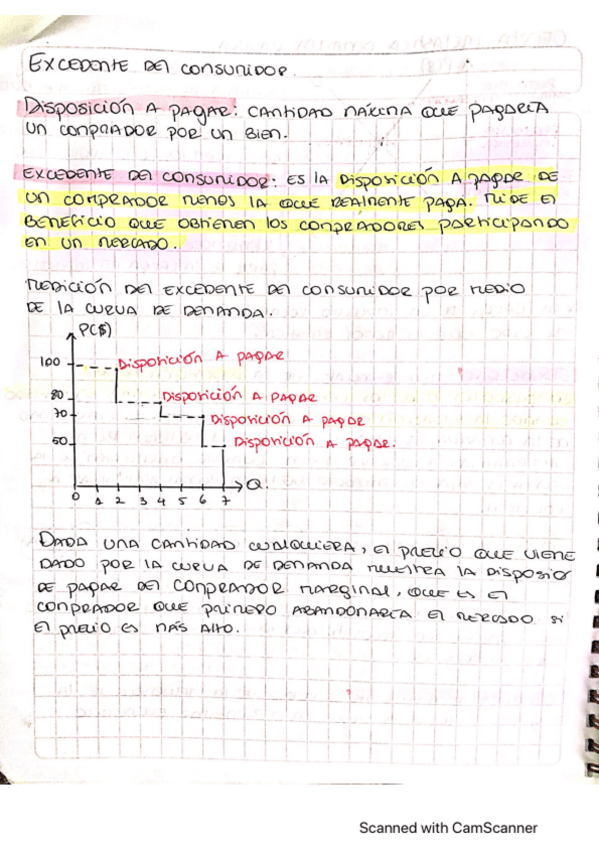 EXCEDENTE DEL CONSUMIDOR.
DISPOSICIÓN A PAGAR: CANTIDAD MÁXIMA QUE PAGARÍA
UN COMPRADOR POR UN BIEN.
EXCEDENTE DEL CONSUMIDOR: ES LA DISPOSICIÓN A PAGAR DE
UN COMPRADOR MENOS LA QUE REALMENTE PAGA. MIDE EL
BENEFICIO QUE OBTIENEN LOS COMPRADORES PARTICIPANDO
EN UN MERCADO.
MEDICIÓN DEL EXCEDENTE DEL CONSUMIDOR POR MEDIO
DE LA CURVA DE DEMANDA.
P($)
100 DISPOSICIÓN A PAGAR
80 DISPOSICIÓN A PAGAR
70 DISPOSICIÓN A PAGAR
50 DISPOSICIÓN A PAGAR.
0 1 2 3 4 5 6 7 Q.
DADA UNA CANTIDAD CUALQUIERA, EL PRECIO QUE VIENE
DADO POR LA CURVA DE DEMANDA MUESTRA LA DISPOSICI
DE PAGAR DEL COMPRADOR MARGINAL, QUE ES EL
COMPRADOR QUE PRIMERO ABANDONARÍA EL MERCADO SI
EL PRECIO ES MÁS ALTO.
Scanned with CamScanner